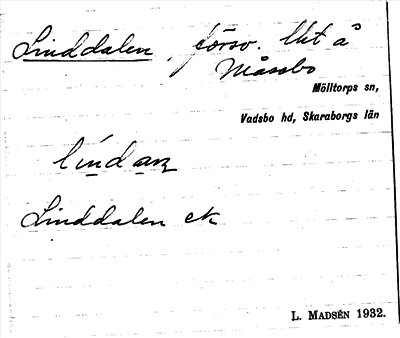 Linddalen, försv. Vret å
Måssbo
Mölltorps sn,
Vadsbo hd, Skaraborgs län
lindan
Linddalen ek
L. MADSÉN 1932.